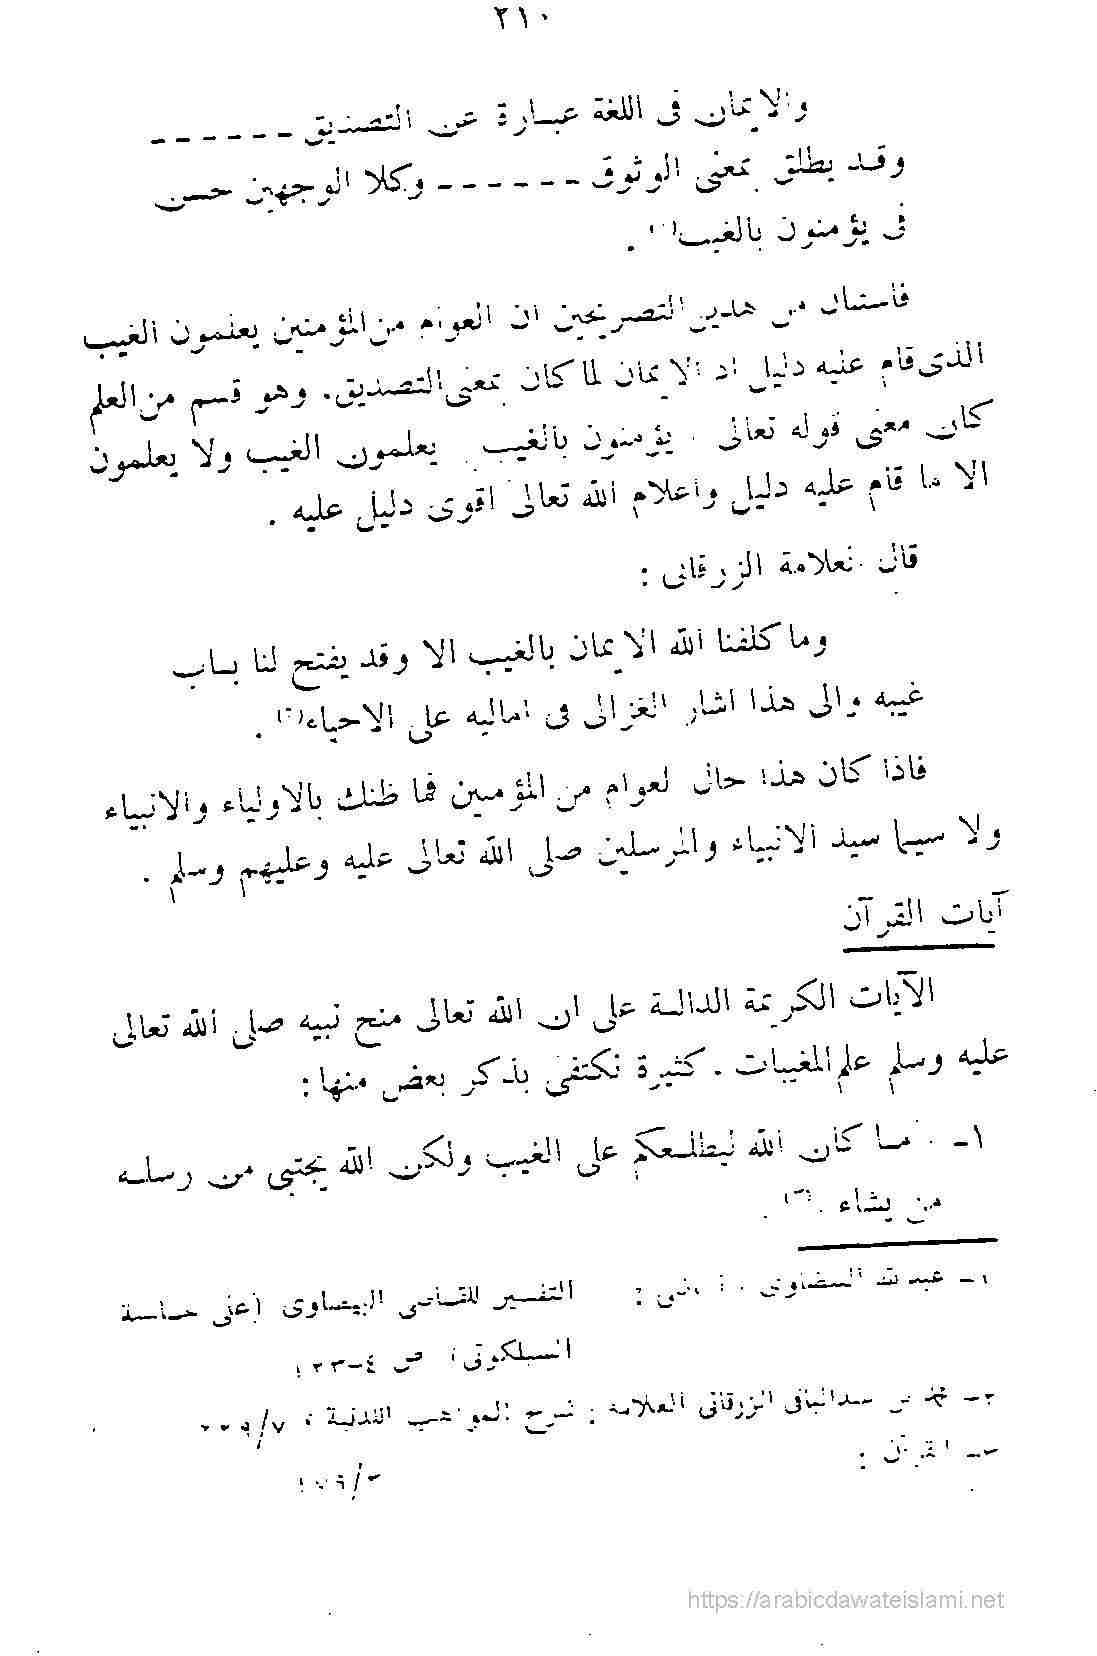 ٢١٠
والايمان فى اللغة عبارة عن التصديق ------
وقد يطلق بمعنى الوثوق ------ وكلا الوجهين حسن
فى يؤمنون بالغيب(١) .
فاستبان من هذين التصريحين ان العوام من المؤمنين يعلمون الغيب
الذى قام عليه دليل اذ الايمان لما كان بمعنى التصديق. وهو قسم من العلم
كان معنى قوله تعالى . يؤمنون بالغيب . يعلمون الغيب ولا يعلمون
الا ما قام عليه دليل واعلام الله تعالى اقوى دليل عليه .
قال العلامة الزرقانى :
وما كلفنا الله الايمان بالغيب الا وقد يفتح لنا باب
غيبه والى هذا اشار الغزالى فى اماليه على الاحياء(٢) .
فاذا كان هذا حال العوام من المؤمنين فما ظنك بالاولياء والانبياء
ولا سيما سيد الانبياء والمرسلين صلى الله تعالى عليه وعليهم وسلم .
آيات القرآن
الآيات الكريمة الدالة على ان الله تعالى منح نبيه صلى الله تعالى
عليه وسلم علم المغيبات . كثيرة نكتفى بذكر بعض منها :
١ـ . ما كان الله ليطلعكم على الغيب ولكن الله يجتبى من رسله
من يشاء .(٣) .
١ـ عبدالله البيضاوى ، : التفسير للقاضى البيضاوى (على حاشية
السيلكوتى) ص ٤-١٣٣
٢ـ محمد بن عبدالباقى الزرقانى العلامة : شرح المواهب اللدنية ،
٣ـ القرآن :
٣/١٧٩
https://arabicdawateislami.net